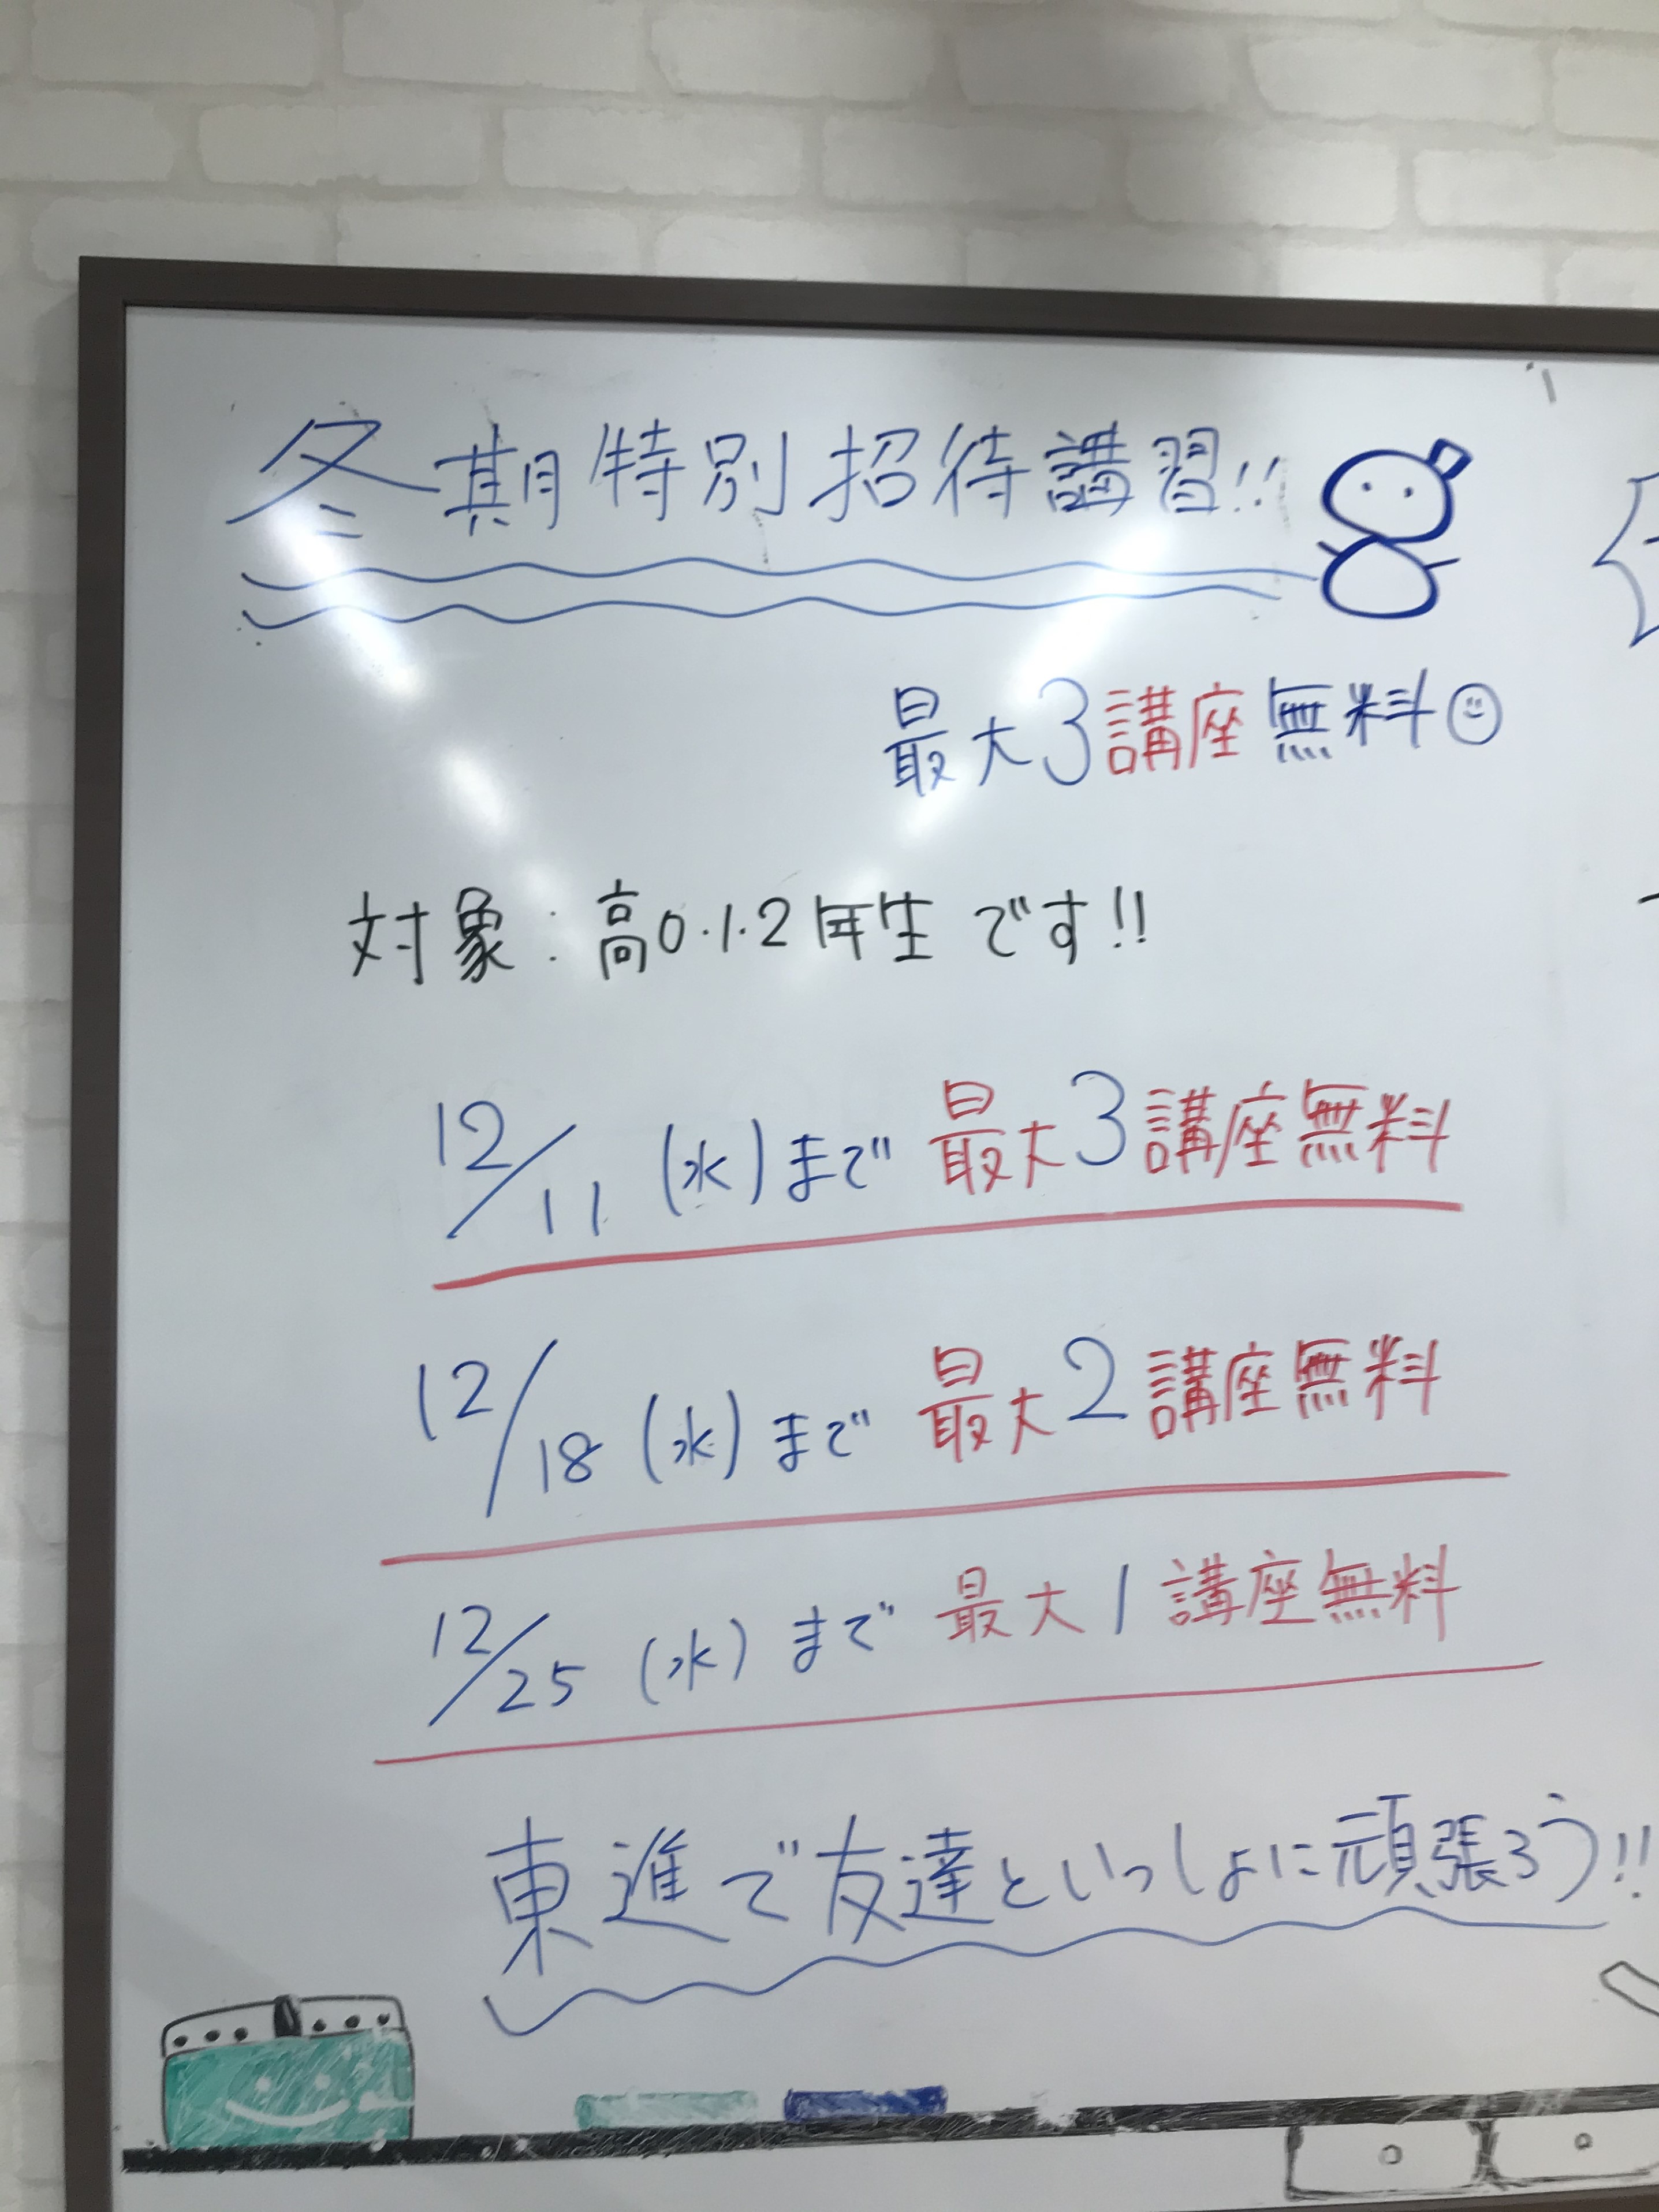 冬期特別招待講習!!
最大3講座無料
対象:高0.1.2年生です!!
12/11(水)まで 最大3講座無料
12/18(水)まで 最大2講座無料
12/25(水)まで 最大1講座無料
東進で友達といっしょに頑張ろう!!